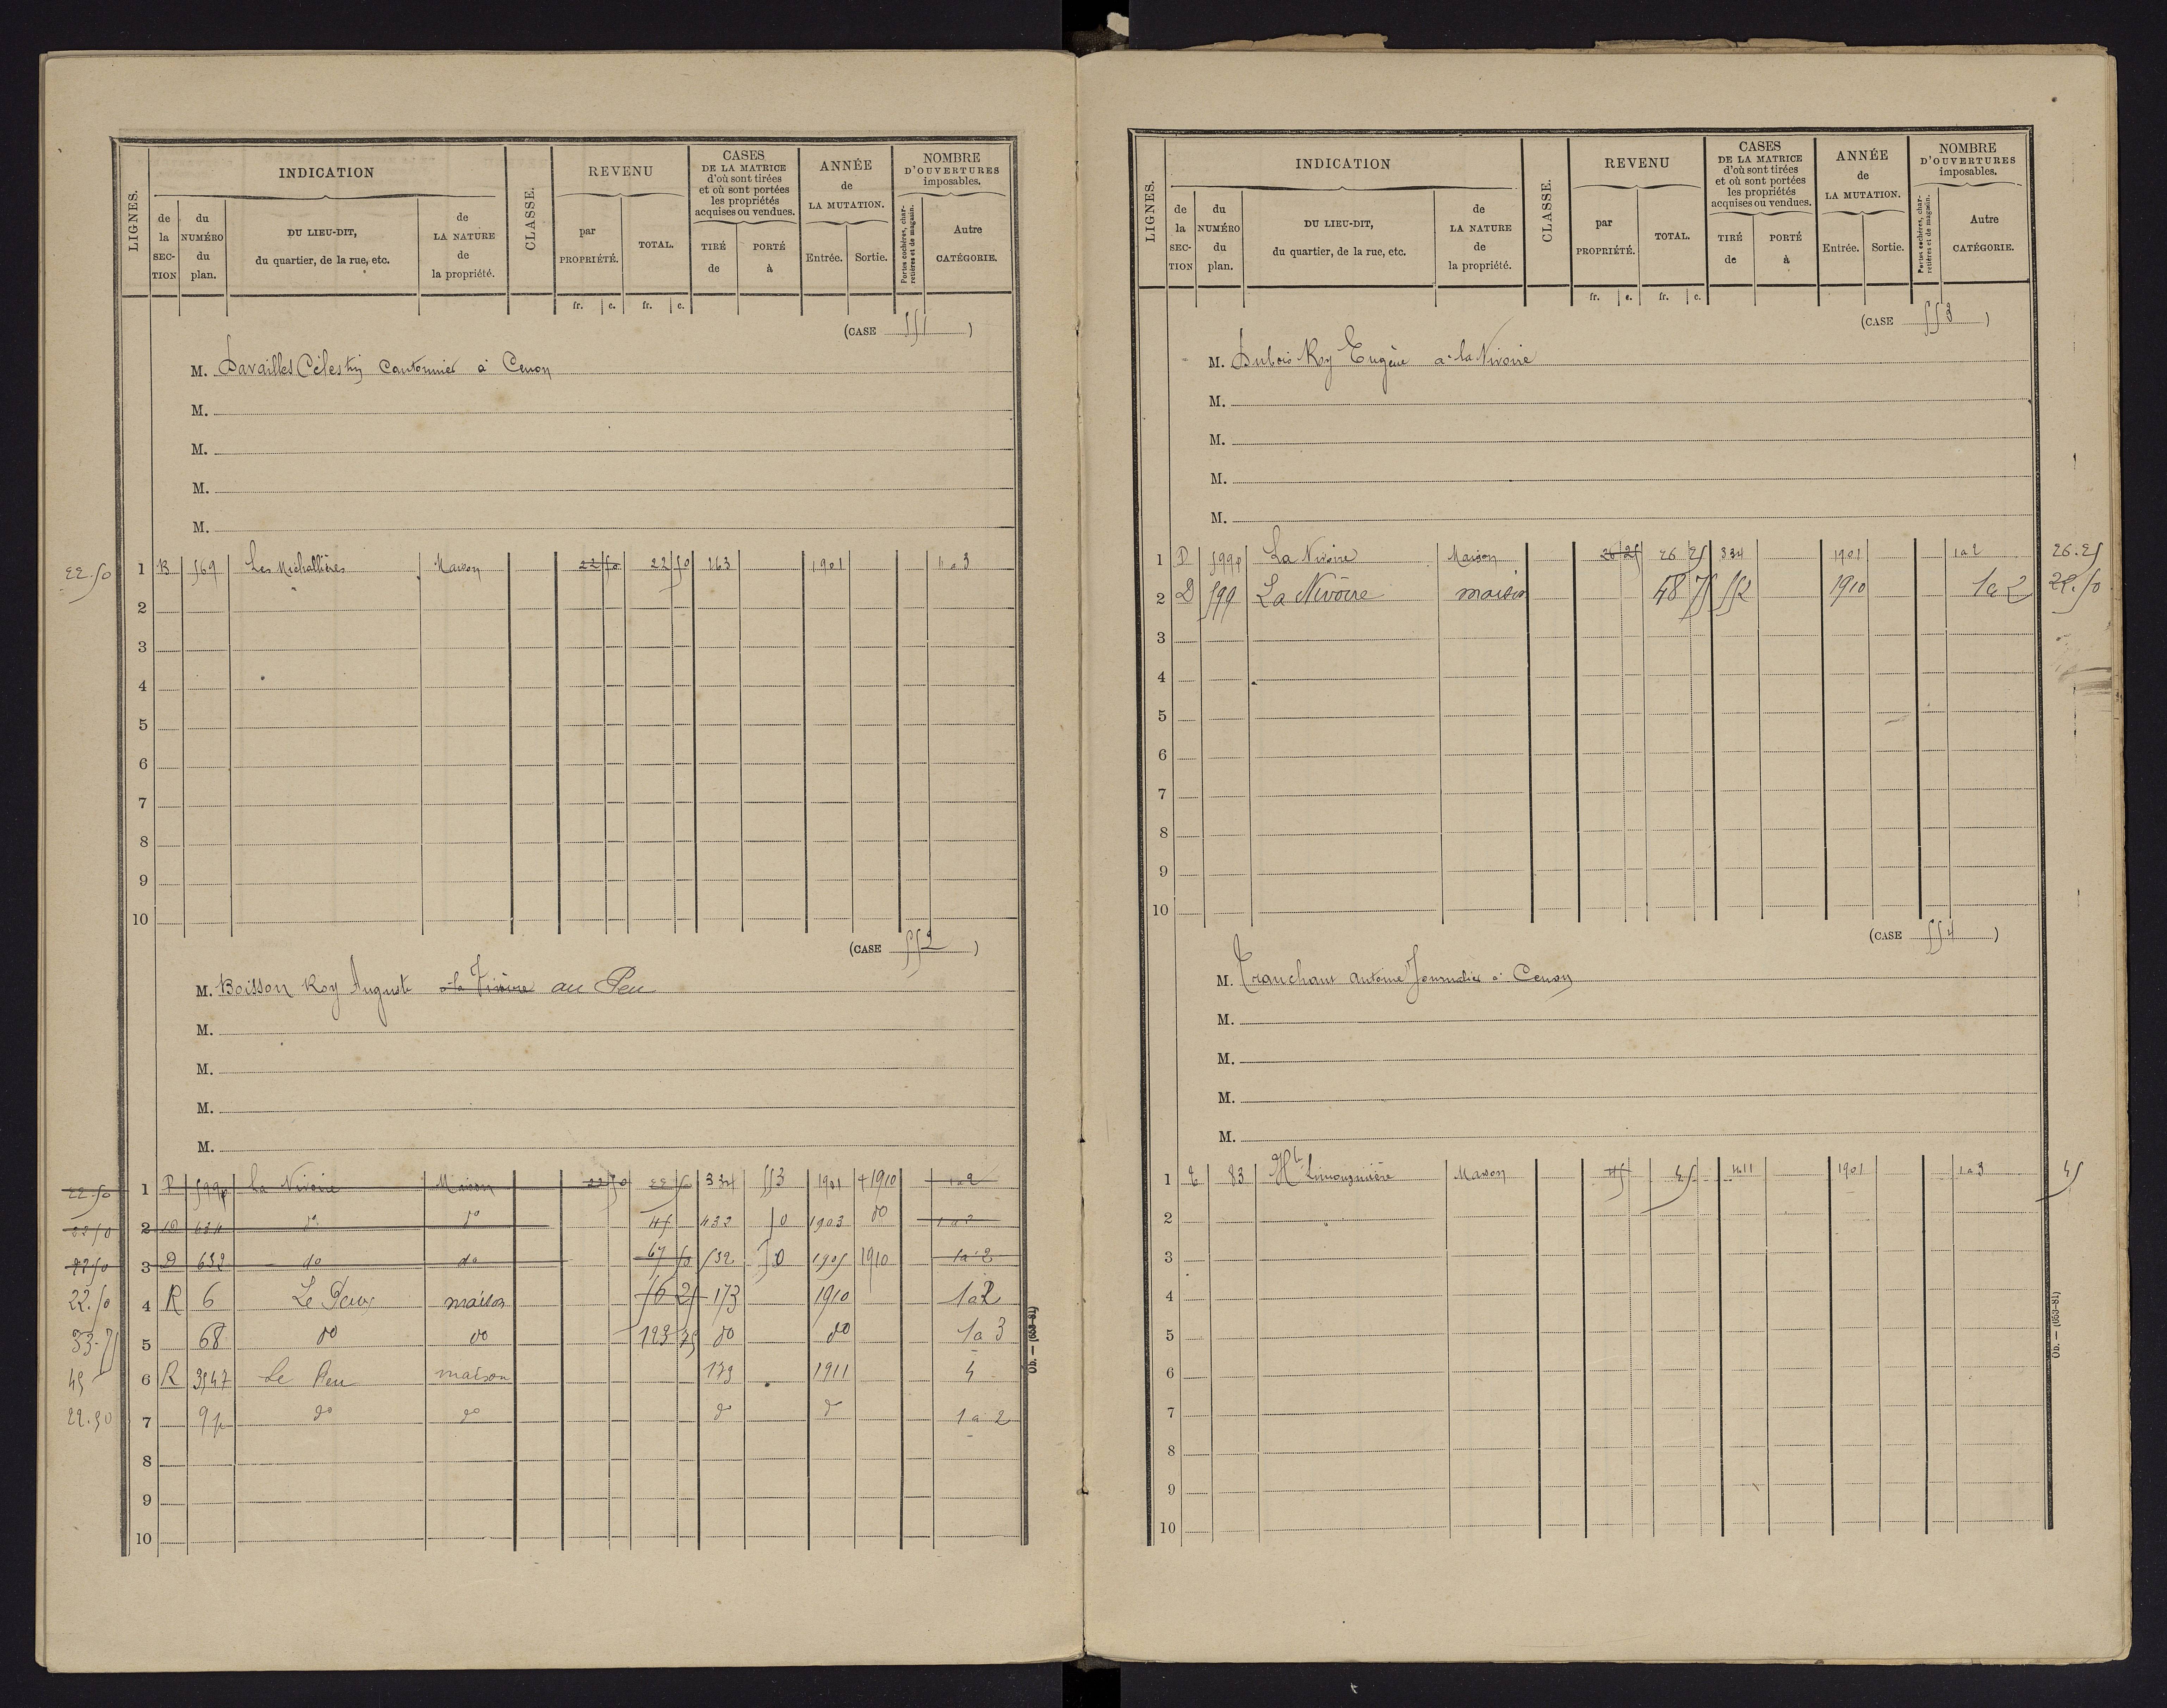 LIGNES.
INDICATION
de la SECTION
du NUMÉRO du plan.
DU LIEU-DIT, du quartier, de la rue, etc.
de LA NATURE de la propriété.
CLASSE.
REVENU
par PROPRIÉTÉ.
TOTAL.
CASES DE LA MATRICE d'où sont tirées et où sont portées les propriétés acquises ou vendues.
TIRÉ de
PORTÉ à
ANNÉE de LA MUTATION.
Entrée. Sortie.
NOMBRE D'OUVERTURES imposables.
Portes cochères, charretières et de magasin.
Autre CATÉGORIE.
fr. c. fr. c.
(CASE 551)
M. Davailles Célestin Cantonnier à Cenon
M.
M.
M.
M.
22.50 1 B 569 Les Michallières Maison 22 50 22 50 263 1901 1 a 3
2
3
4
5
6
7
8
9
10
(CASE 552)
M. Boisson Roy Auguste à la Nivoire au Peu
M.
M.
M.
M.
22.50 1 D 599p La Nivoire Maison 22 50 22 50 334 553 1901 1910 1 a 2
22 50 2 D 634 do do 45 432 50 1903 do 1 a 2
22 50 3 D 632 do do 67 50 532 50 1905 1910 1 a 2
22.50 4 R 6 Le Peux maison 56 25 173 1910 1 a 2
33.75 5 68 do do 123 75 do do 1 a 3
45 6 R 3547 Le Peu maison 173 1911 4
22.50 7 9p do do do do 1 a 2
8
9
10
Ob. — (053-81)
LIGNES.
INDICATION
de la SECTION
du NUMÉRO du plan.
DU LIEU-DIT, du quartier, de la rue, etc.
de LA NATURE de la propriété.
CLASSE.
REVENU
par PROPRIÉTÉ.
TOTAL.
CASES DE LA MATRICE d'où sont tirées et où sont portées les propriétés acquises ou vendues.
TIRÉ de
PORTÉ à
ANNÉE de LA MUTATION.
Entrée. Sortie.
NOMBRE D'OUVERTURES imposables.
Portes cochères, charretières et de magasin.
Autre CATÉGORIE.
fr. c. fr. c.
(CASE 553)
M. Dubois Roy Eugène à la Nivoire
M.
M.
M.
M.
1 D 599p La Nivoire Maison 26 25 26 25 334 1901 1 a 2 26.25
2 D 599 La Nivoire maison 48 75 552 1910 1 a 2 22.50
3
4
5
6
7
8
9
10
(CASE 554)
M. Tranchant Antoine Journalier à Cenon
M.
M.
M.
M.
1 E 83 Hte Limougnière Maison 45 45 411 1901 1 a 3 45
2
3
4
5
6
7
8
9
10
Ob. — (053-81)